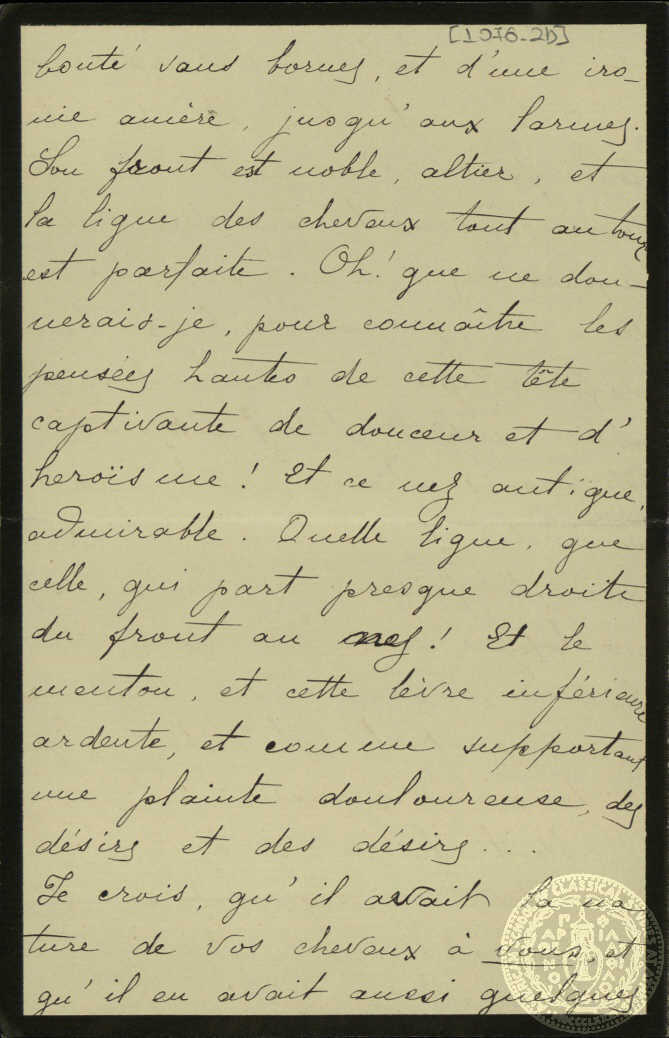 [1076-2b]
bonté sans bornes, et d'une iro-
nie amère, jusqu'aux larmes.
Son front est noble, altier, et
la ligne des cheveux tout autour
est parfaite. Oh! que ne don-
nerais-je, pour connaître les
pensées hautes de cette tête
captivante de douceur et d'
heroïsme! Et ce nez antique,
admirable. Quelle ligne, que
celle, qui part presque droite
du front au nez! Et le
menton, et cette lèvre inférieure
ardente, et comme supportant
une plainte douloureuse, des
désirs et des désirs...
Je crois, qu'il avait la na
ture de vos cheveux à vous, et
qu'il en avait aussi quelques